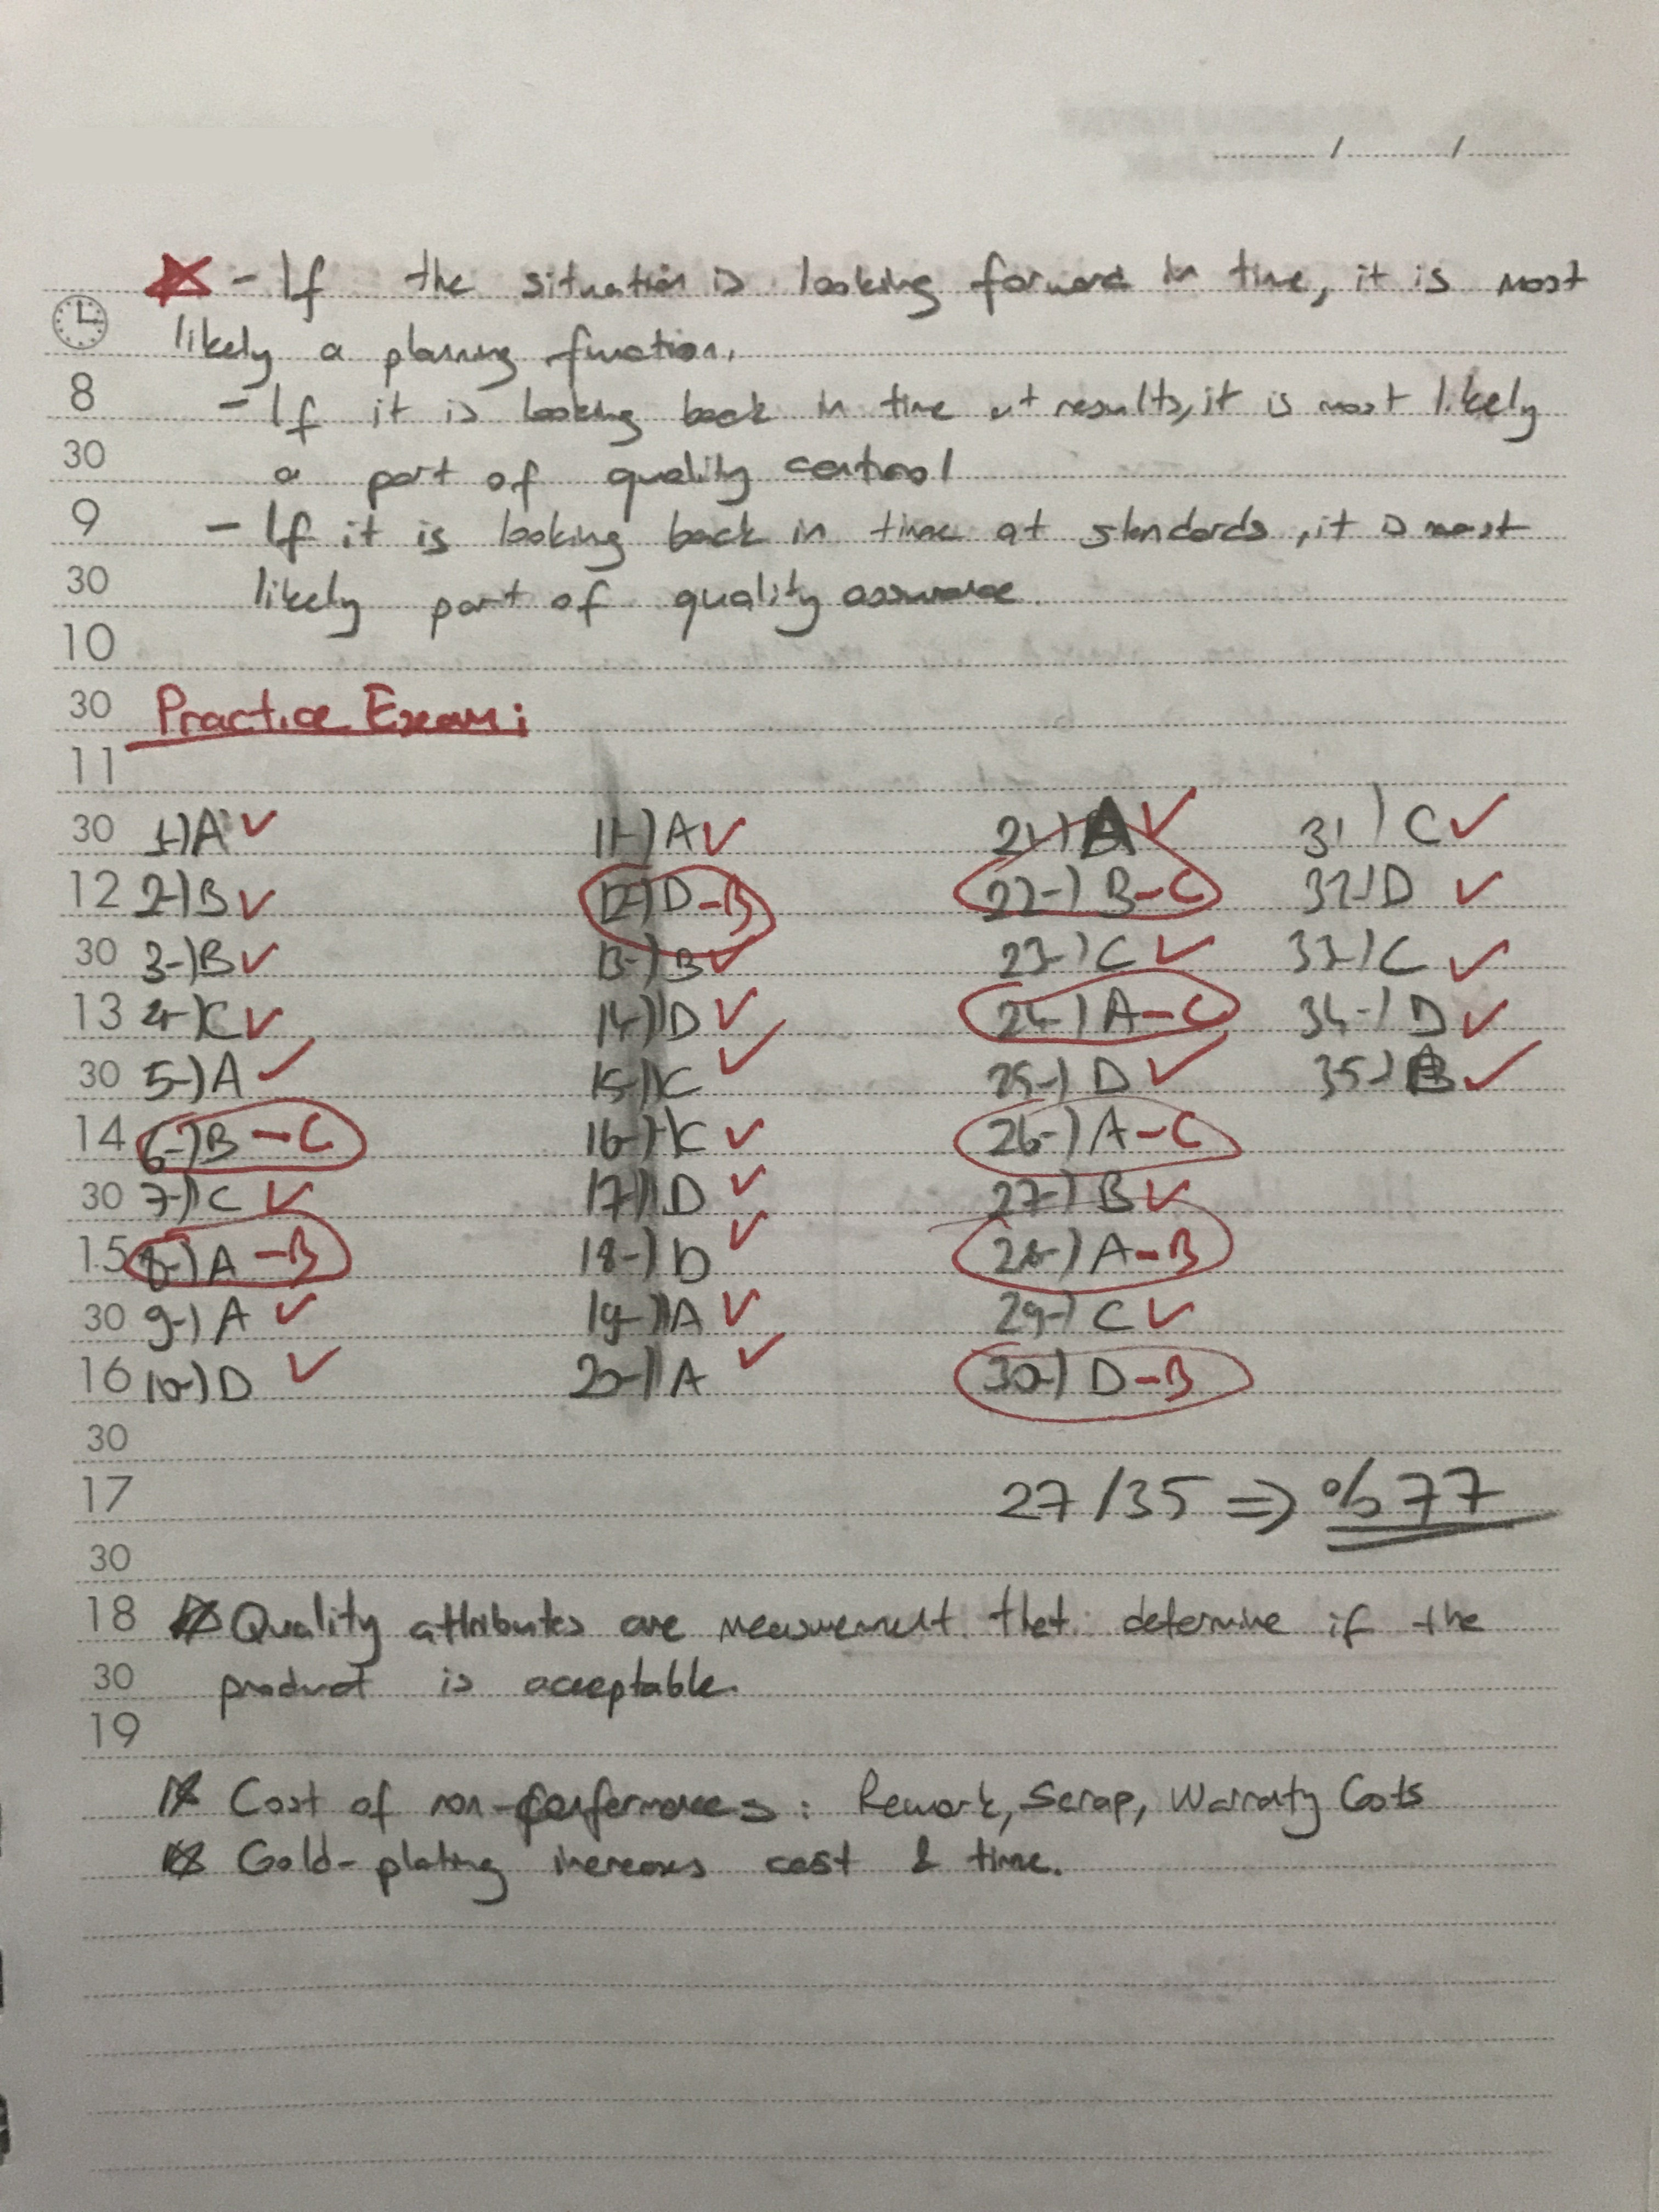 / /
- If the situation is looking forward in time, it is most
likely a planning function.
8 - If it is looking back in time at results, it is most likely
30 a part of quality control
9 - If it is looking back in time at standards, it is most
30 likely part of quality assurance.
10
30 Practice Exam:
11
30 1-) A ✓ 11-) A ✓ 21-) A ✓ 31-) C ✓
12 2-) B ✓ 12-) D - B 22-) B - C 32-) D ✓
30 3-) B ✓ 13-) B ✓ 23-) C ✓ 33-) C ✓
13 4-) C ✓ 14-) D ✓ 24-) A - C 34-) D ✓
30 5-) A ✓ 15-) C ✓ 25-) D ✓ 35-) ✓
14 6-) B - C 16-) C ✓ 26-) A - C
30 7-) C ✓ 17-) D ✓ 27-) B ✓
15 8-) A - B 18-) D ✓ 28-) A - B
30 9-) A ✓ 19-) A ✓ 29-) C ✓
16 10-) D ✓ 20-) A ✓ 30-) D - B
30
17 27/35 => %77
30
18 Quality attributes are measurement that determine if the
30 product is acceptable.
19
Cost of non-: Rework, Scrap, Warranty Costs
Gold-plating increases cost & time.